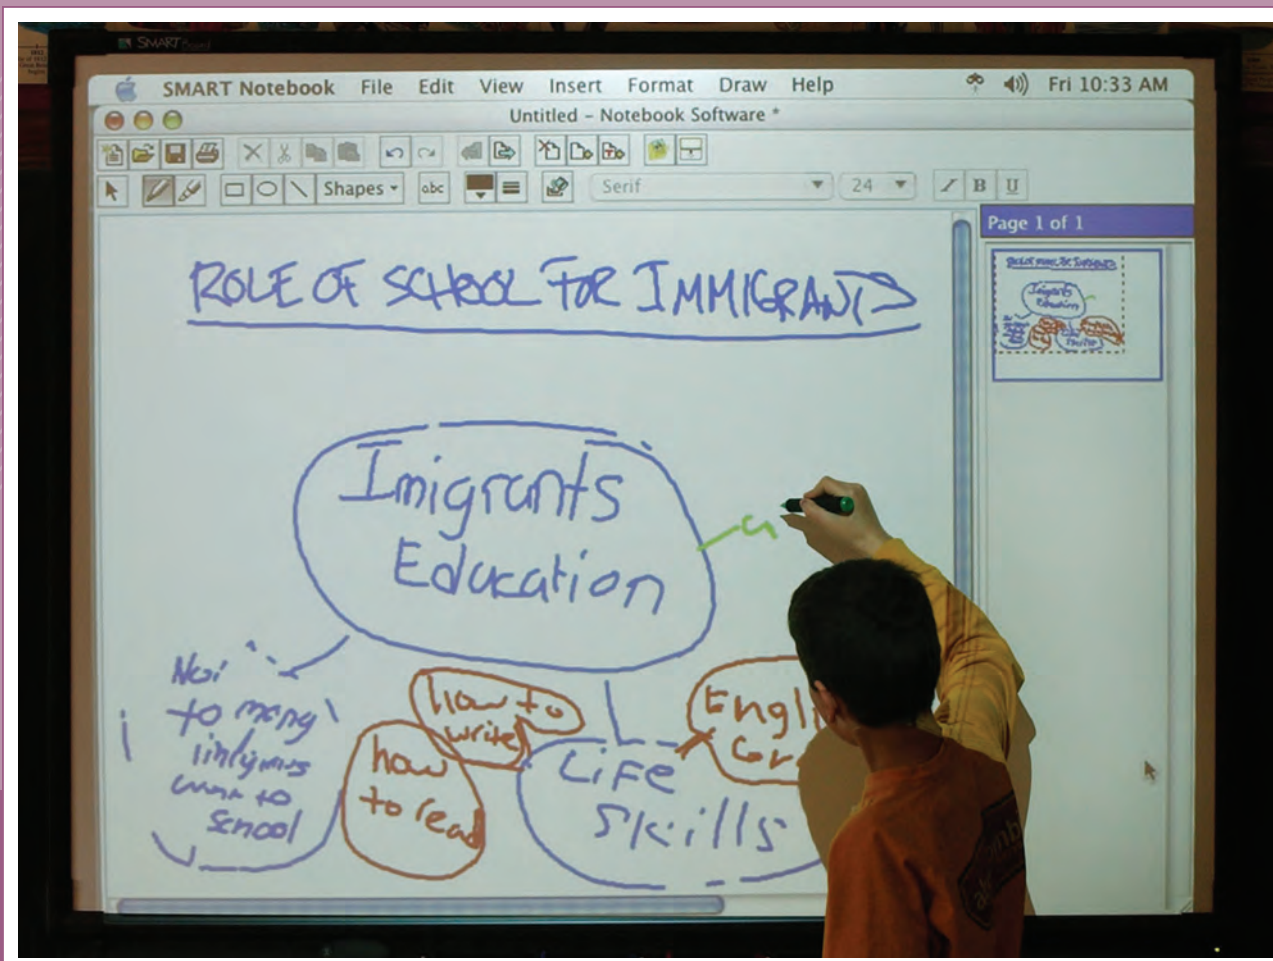 SMART Board
SMART Notebook File Edit View Insert Format Draw Help Fri 10:33 AM
Untitled – Notebook Software *
Shapes abc Serif 24 I B U
Page 1 of 1
ROLE OF SCHOOL FOR IMMIGRANTS
Imigrants
Education
to many
to
school
how to
write
how
to read
Life
Skills